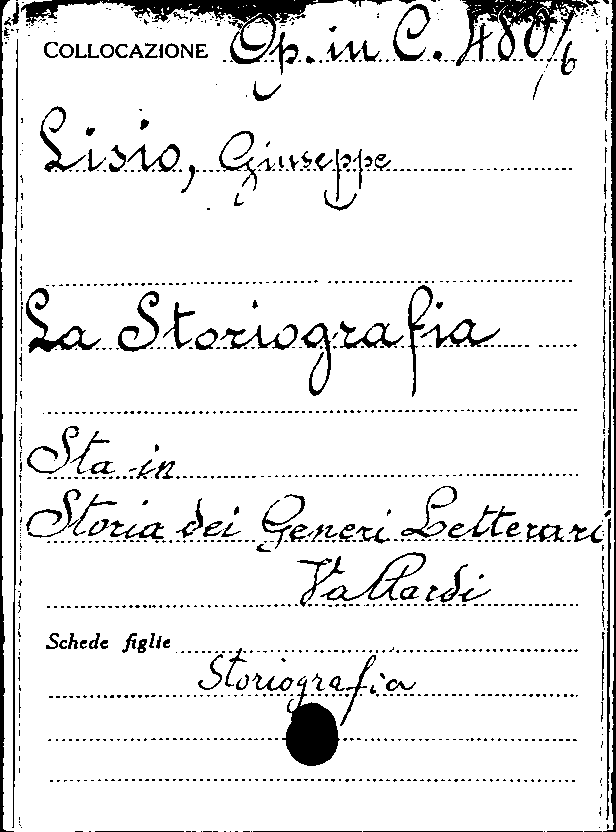 COLLOCAZIONE Op. in C. 480/6
Lisio, Giuseppe
La Storiografia
Sta in
Storia dei Generi Letterari
Vallardi
Schede figlie
Storiografia